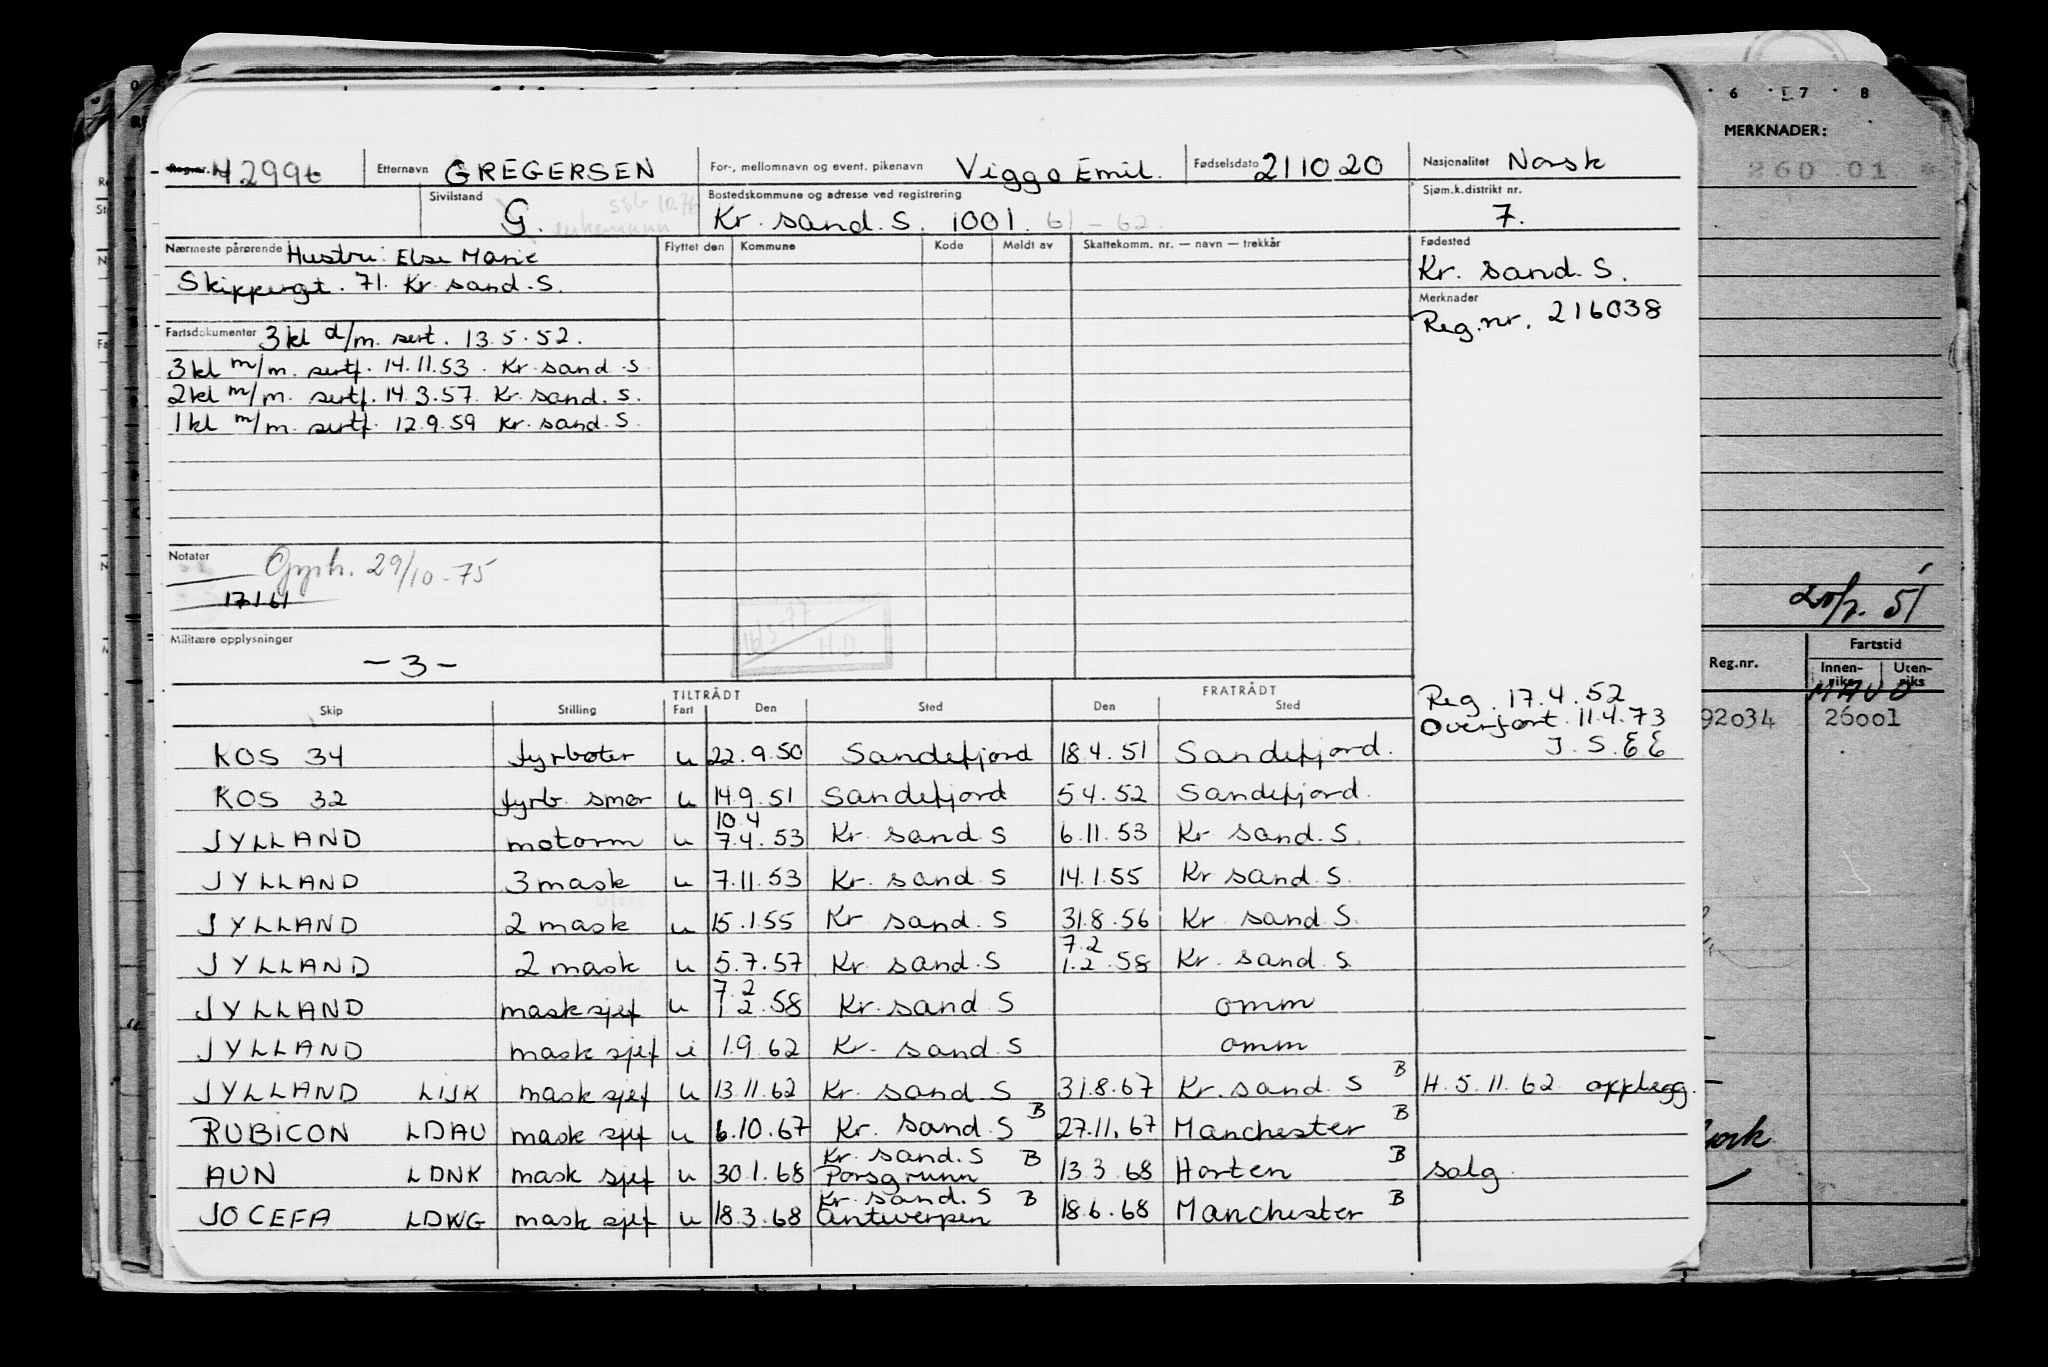 Reg.nr. 4299t Etternavn GREGERSEN For-, mellomnavn og event. pikenavn Viggo Emil. Fødselsdato 211020 Nasjonalitet Norsk
Sivilstand G. Bostedskommune og adresse ved registrering Kr. sand. S. 1001. 61-62. Sjøm.k.distrikt nr. 7.
Nærmeste pårørende Hustru: Else Marie Flyttet den Kommune Kode Meldt av Skattekomm. nr. — navn — trekkår Fødested
Skippergt. 71. Kr. sand. S. Kr. sand. S.
Merknader
Reg.nr. 216038
Fartsdokumenter 3 kl d/m. sert. 13.5.52.
3 kl m/m. sertf. 14.11.53. Kr. sand. S
2 kl m/m. sertf. 14.3.57. Kr. sand. S.
1 kl m/m. sertf. 12.9.59 Kr. sand. S.
Notater 29/10-75
17161
Militære opplysninger
-3-
H.D.
Reg. 17.4.52
Overført. 11.4.73
J.S.EE
TILTRÅDT FRATRÅDT
Skip Stilling Fart Den Sted Den Sted
KOS 34 fyrbøter u 22.9.50 Sandefjord 18.4.51 Sandefjord.
KOS 32 fyrb. smør u 14.9.51 Sandefjord 5.4.52 Sandefjord.
10.4
JYLLAND motorm u 7.4.53 Kr. sand. S 6.11.53 Kr sand. S.
JYLLAND 3 mask u 7.11.53 Kr. sand. S 14.1.55 Kr sand. S.
JYLLAND 2 mask u 15.1.55 Kr sand. S 31.8.56 Kr. sand. S.
7.2
JYLLAND 2 mask u 5.7.57 Kr. sand. S 1.2.58 Kr. sand. S
7.2
JYLLAND mask sjef u 1 2.58 Kr. sand. S omm
JYLLAND mask sjef i 1.9.62 Kr. sand. S omm
JYLLAND LIJK mask sjef u 13.11.62 Kr. sand. S 31.8.67 Kr. sand. S B H. 5.11.62 opplegg.
RUBICON LDAU mask sjef u 6.10.67 Kr. sand. S B 27.11.67 Manchester B
Kr. sand. S B
AUN LDNK mask sjef u 30.1.68 Porsgrunn 13.3.68 Horten B salg.
Kr sand. S B
JOCEFA LDWG mask sjef u 18.3.68 Antwerpen 18.6.68 Manchester B
6 7 8
MERKNADER:
260 01
51
Reg.nr. Fartstid
Innenriks Utenriks
92034 26001